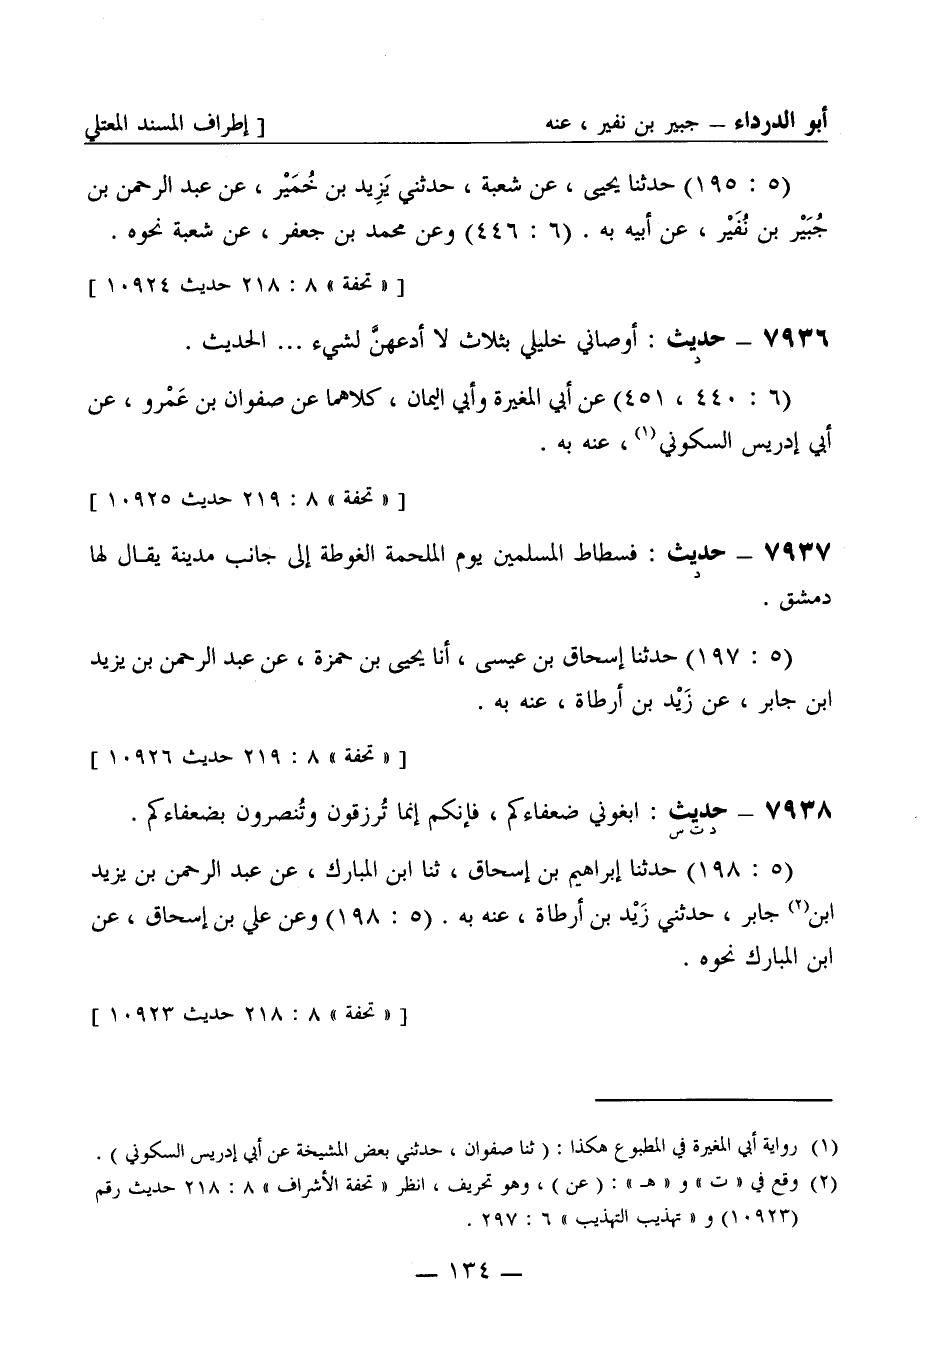 أبو الدرداء – جبير بن نفير ، عنه [ إطراف المسند المعتلي
(٥ : ١٩٥) حدثنا يحيى ، عن شعبة ، حدثني يَزِيد بن خُمَيْر ، عن عبد الرحمن بن
جُبَيْر بن نُفَيْر ، عن أبيه به . (٦ : ٤٤٦) وعن محمد بن جعفر ، عن شعبة نحوه .
[ « تحفة » ٨ : ٢١٨ حديث ١٠٩٢٤ ]
٧٩٣٦ – حديث : أوصاني خليلي بثلاث لا أدعهنَّ لشيء ... الحديث .
د
(٦ : ٤٤٠ ، ٤٥١) عن أبي المغيرة وأبي اليمان ، كلاهما عن صفوان بن عَمْرو ، عن
أبي إدريس السكوني(١) ، عنه به .
[ « تحفة » ٨ : ٢١٩ حديث ١٠٩٢٥ ]
٧٩٣٧ – حديث : فسطاط المسلمين يوم الملحمة الغوطة إلى جانب مدينة يقال لها
د
دمشق .
(٥ : ١٩٧) حدثنا إسحاق بن عيسى ، أنا يحيى بن حمزة ، عن عبد الرحمن بن يزيد
ابن جابر ، عن زَيْد بن أرطاة ، عنه به .
[ « تحفة » ٨ : ٢١٩ حديث ١٠٩٢٦ ]
٧٩٣٨ – حديث : ابغوني ضعفاءكم ، فإنكم إنما تُرزقون وتُنصرون بضعفاءكم .
د ت س
(٥ : ١٩٨) حدثنا إبراهيم بن إسحاق ، ثنا ابن المبارك ، عن عبد الرحمن بن يزيد
ابن(٢) جابر ، حدثني زَيْد بن أرطاة ، عنه به . (٥ : ١٩٨) وعن علي بن إسحاق ، عن
ابن المبارك نحوه .
[ « تحفة » ٨ : ٢١٨ حديث ١٠٩٢٣ ]
(١) رواية أبي المغيرة في المطبوع هكذا : ( ثنا صفوان ، حدثني بعض المشيخة عن أبي إدريس السكوني ) .
(٢) وقع في « ت » و « هـ » : ( عن ) ، وهو تحريف ، انظر « تحفة الأشراف » ٨ : ٢١٨ حديث رقم
(١٠٩٢٣) و « تهذيب التهذيب » ٦ : ٢٩٧ .
– ١٣٤ –